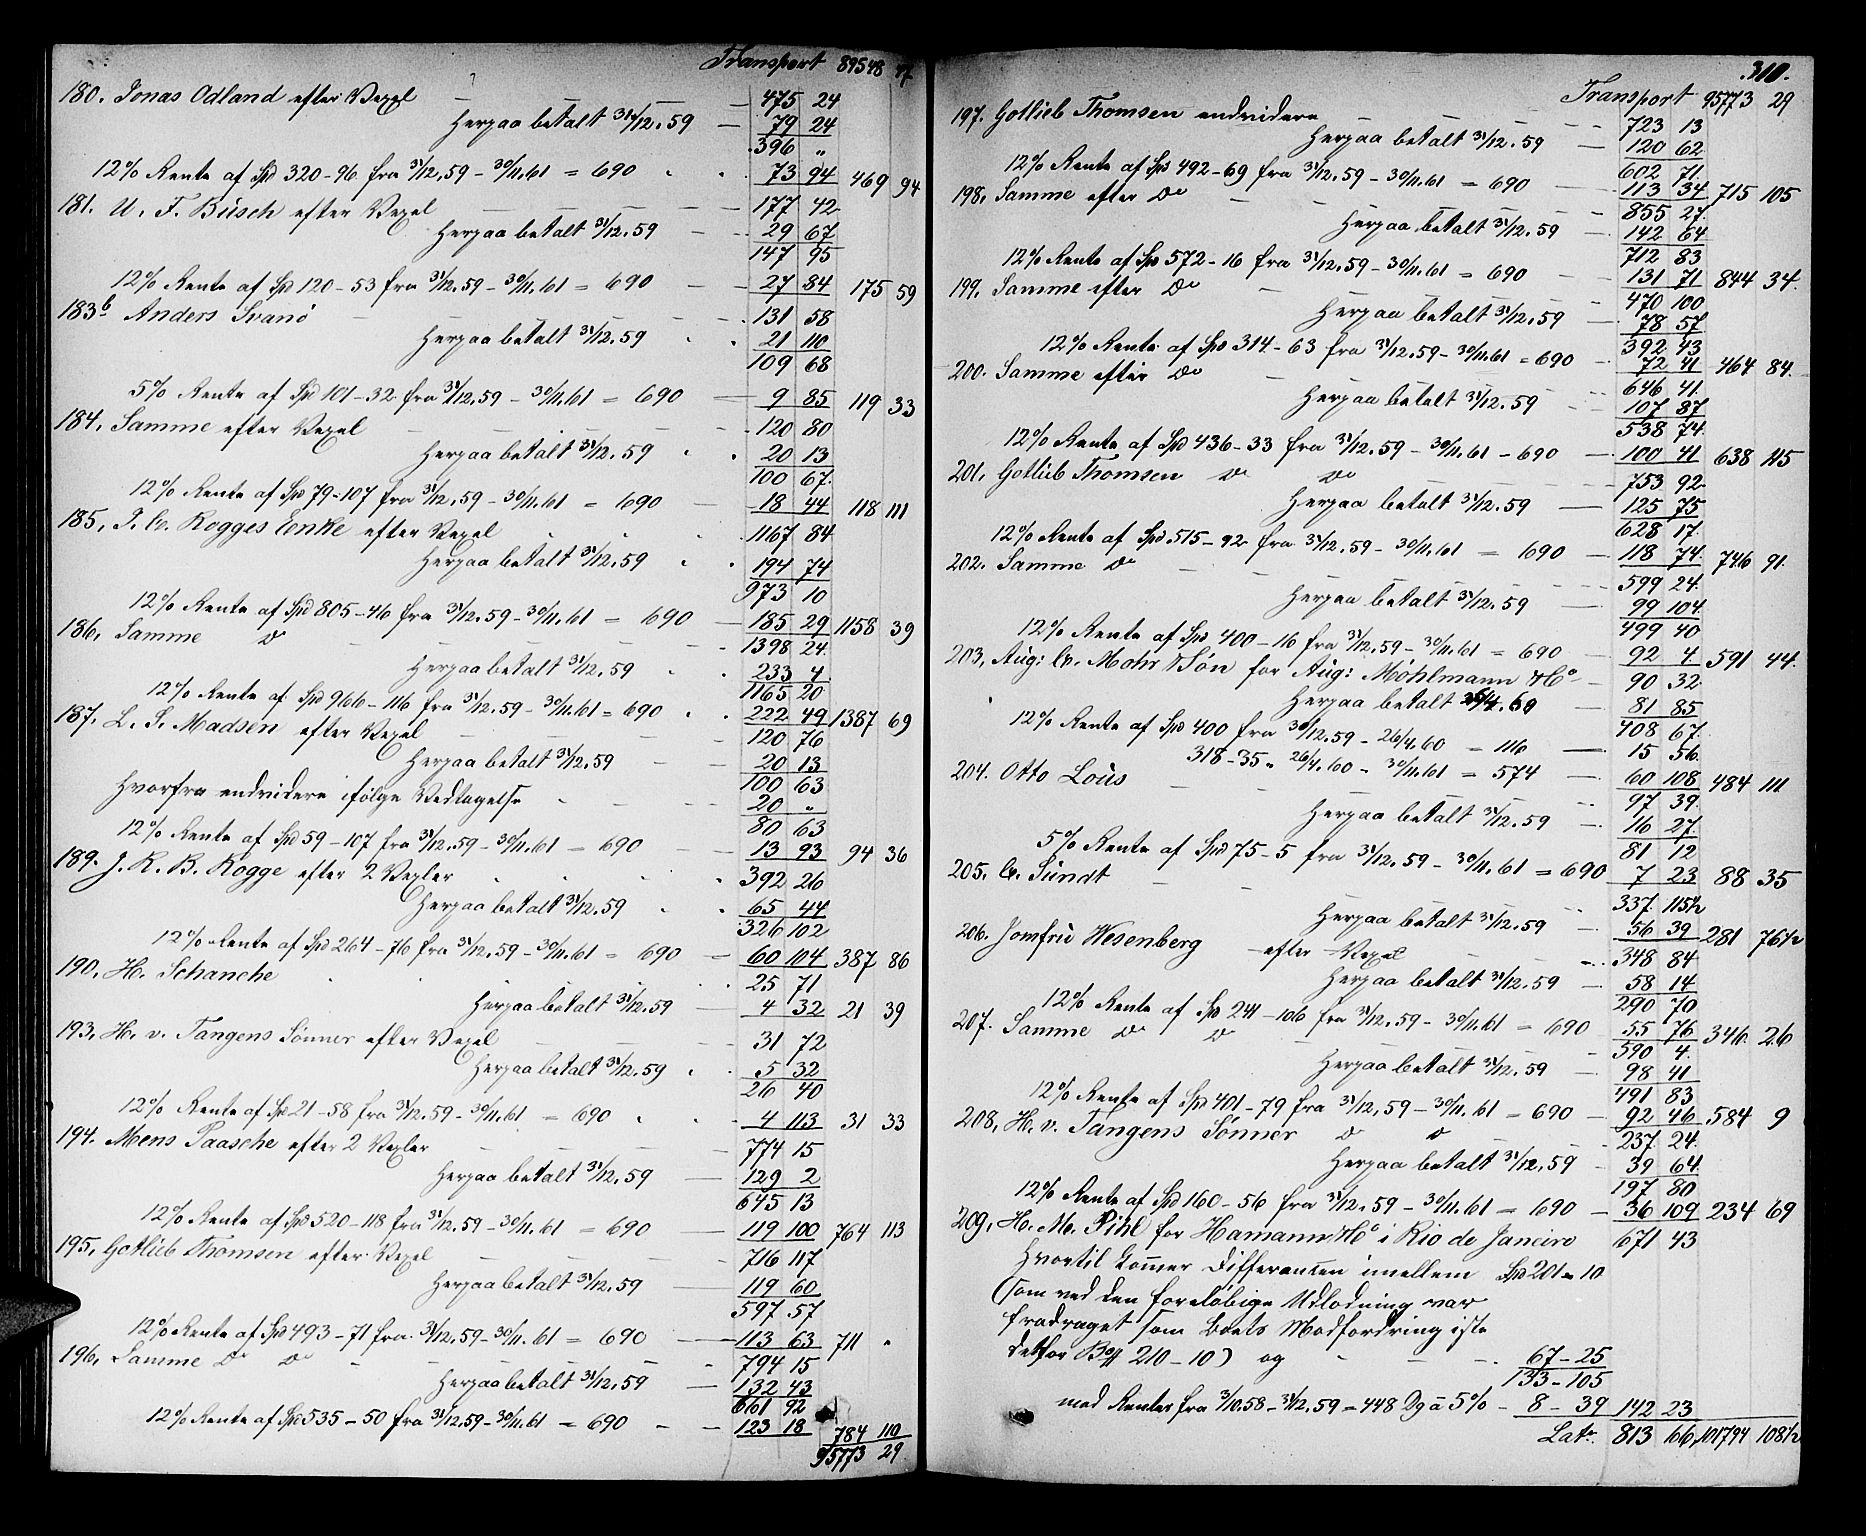 Transport 89548 47
180. Jonas Odland efter Vexel — 475 24
Herpaa betalt 31/12.59 — 79 24
396 „
12% Rente af Spd 320-96 fra 31/12.59 - 30/11.61 = 690 73 94 469 94
181. U. F. Büsch efter Vexel — 177 42
Herpaa betalt 31/12.59 — 29 67
147 95
12% Rente af Spd 120-53 fra 31/12.59 - 30/11.61 = 690 — 27 84 175 59
183b Anders Svanö — 131 58
Herpaa betalt 31/12.59 21 110
109 68
5% Rente af Spd 101-32 fra 31/12.59 - 30/11.61 = 690 — 9 85 119 33
184. Samme efter Vexel — 120 80
Herpaa betalt 31/12.59 20 13
100 67
12% Rente af Spd 79-107 fra 31/12.59 - 30/11.61 = 690 — 18 44 118 111
185. Rogges Enke efter Vexel 1167 84
Herpaa betalt 31/12.59 194 74
973 10
12% Rente af Spd 805-46 fra 31/12.59 - 30/11.61 = 690 — 185 29 1158 39
186. Samme Do — 1398 24
Herpaa betalt 31/12.59 233 4
1165 20
12% Rente af Spd 966-116 fra 31/12.59 - 30/11.61 = 690 222 49 1387 69
187. L. S. Madsen efter Vexel — 120 76
Herpaa betalt 31/12.59 — 20 13
100 63
Hvorfra endvidere ifölge Vedtagelse — 20 „
80 63
12% Rente af Spd 59-107 fra 31/12.59 - 30/11.61 = 690 — 13 93 94 36
189. J. R. B. Rogge efter 2 Vexler 392 26
Herpaa betalt 31/12.59 65 44
326 102
12% Rente af Spd 264-76 fra 31/12.59 - 30/11.61 = 690 — 60 104 387 86
190. H. Schanche 25 71
Herpaa betalt 31/12.59 — 4 32 21 39
193. H. v. Tangens Sönner efter Vexel — 31 72
Herpaa betalt 31/12.59 5 32
26 40
12% Rente af Spd 21-58 fra 31/12.59 - 30/11.61 = 690 4 113 31 33
194. Mens Paasche efter 2 Vexler — 774 15
Herpaa betalt 31/12.59 — 129 2
645 13
12% Rente af Spd 520-118 fra 31/12.59 - 30/11.61 = 690 — 119 100 764 113
195. Gotlieb Thomsen efter Vexel — 716 117
Herpaa betalt 31/12.59 — 119 60
597 57
12% Rente af Spd 493-71 fra 31/12.59 - 30/11.61 = 690 — 113 63 711 „
196. Samme Do Do — 794 15
Herpaa betalt 31/12.59 — 132 43
661 92
12% Rente af Spd 535-50 fra 31/12.59 - 30/11.61 = 690 — 123 18 784 110
95773 29
310.
Transport 95773 29
197. Gotlieb Thomsen endvidere — 723 13
Herpaa betalt 31/12.59 — 120 62
602 71
12% Rente af Spd 492-69 fra 31/12.59 - 30/11.61 = 690 — 113 34 715 105
198. Samme efter Do — 855 27
Herpaa betalt 31/12.59 — 142 64
712 83
12% Rente af Spd 572-16 fra 31/12.59 - 30/11.61 = 690 — 131 71 844 34
199. Samme efter Do — 470 100
Herpaa betalt 31/12.59 — 78 57
392 43
12% Rente af Spd 314-63 fra 31/12.59 - 30/11.61 = 690 — 72 41 464 84
200. Samme efter Do — 646 41
Herpaa betalt 31/12.59 — 107 87
538 74
12% Rente af Spd 436-33 fra 31/12.59 - 30/11.61 - 690 — 100 41 638 115
201. Gotlieb Thomsen Do Do — 753 92
Herpaa betalt 31/12.59 — 125 75
628 17
12% Rente af Spd 515-92 fra 31/12.59 - 30/11.61 = 690 — 118 74 746 91
202. Samme Do — 599 24
Herpaa betalt 31/12.59 — 99 104
499 40
12% Rente af Spd 400-16 fra 31/12.59 - 30/11.61 = 690 — 92 4 591 44
203. Aug: C. Mohr & Sön for Aug: Möhlmann & Co — 90 32
Herpaa betalt 26/4.60 — 81 85
408 67
12% Rente af Spd 400 fra 30/12.59 - 26/4.60 = 116 — 15 56
318-35 „ 26/4.60 - 30/11.61 = 574 — 60 108 484 111
204. Otto Lous — 97 39
Herpaa betalt 31/12.59 — 16 27
81 12
5% Rente af Spd 75-5 fra 31/12.59 - 30/11.61 = 690 7 23 88 35
205. C. Sundt — 337 115½
Herpaa betalt 31/12.59 — 56 39 281 76½
206. Jomfru Wesenberg — efter Vexel — 348 84
Herpaa betalt 31/12.59 — 58 14
290 70
12% Rente af Spd 241-106 fra 31/12.59 - 30/11.61 = 690 55 76 346 26
207. Samme Do Do — 590 4
Herpaa betalt 31/12.59 — 98 41
491 83
12% Rente af Spd 401-79 fra 31/12.59 - 30/11.61 = 690 — 92 46 584 9
208. H. v. Tangens Sönner Do Do — 237 24
Herpaa betalt 31/12.59 — 39 64
197 80
12% Rente af Spd 160-56 fra 31/12.59 - 30/11.61 = 690 — 36 109 234 69
209. H. M. Pihl for Hamann & Co i Rio de Janeiro 671 43
Hvortil kommer Differansen imellem Spd 201 „ 10
(som ved den foreløbige Udlodning var
fradraget som Boets Modfordring iste-
detfor 210-10) og — 67-25
133-105
med Renter fra 3/10.58 - 31/12.59 = 448 Dg à 5% - 8-39 142 23
Lats. 813 66 101794 108½